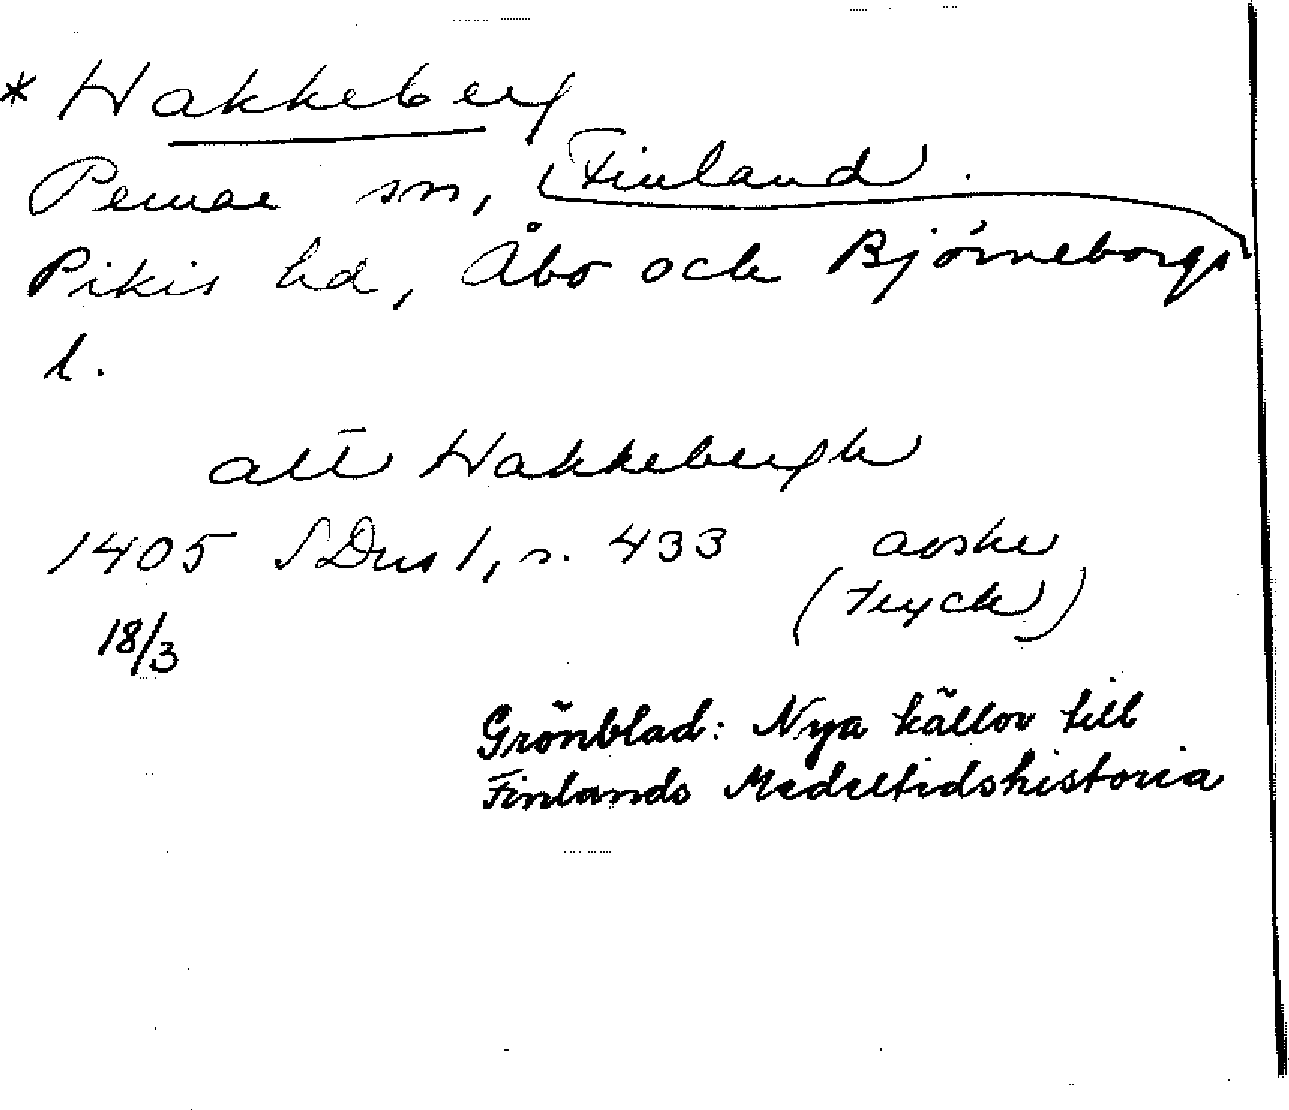 * Hakkeberg
Pemar sn, Finland.
Pikis hd, Åbo och Björneborgs
l.
att Hakkebergh
1405 SDns 1, s. 433 avskr
(tryck)
18/3
Grönblad: Nya källor till
Finlands Medeltidshistoria